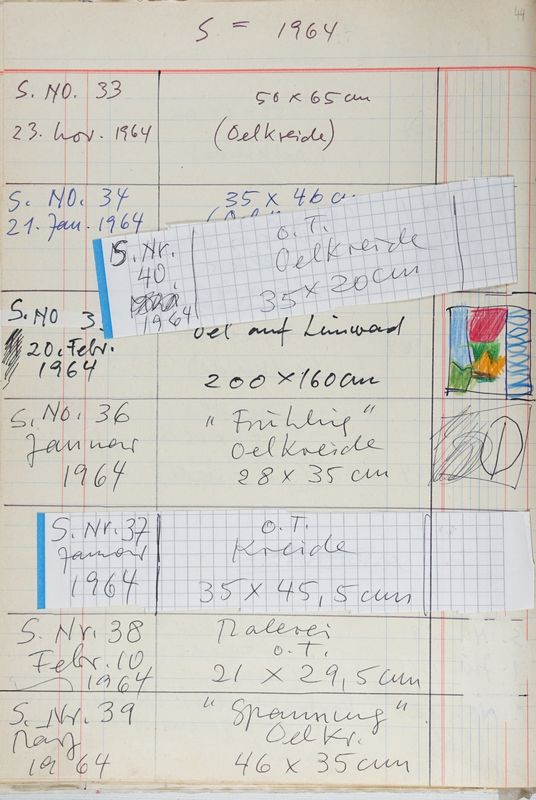 44
S = 1964
S. NO. 33 50 x 65 cm
23. Nov. 1964 (Oelkreide)
S. NO. 34 35 x 46 c
21. Jan. 1964
S. Nr. 40 O.T.
Oelkreide
1964 35 x 20 cm
S. NO 3 Oel auf Linwad
20. Febr. 1964 200 x 160 cm
S. No. 36 "Frühlig"
Januar Oelkreide
1964 28 x 35 cm
S. Nr. 37 O.T.
Januar Kreide
1964 35 x 45,5 cm
S. Nr. 38 Malerei
Febr. 10 O.T.
1964 21 x 29,5 cm
S. Nr. 39 "Spannung"
März OelKr.
1964 46 x 35 cm